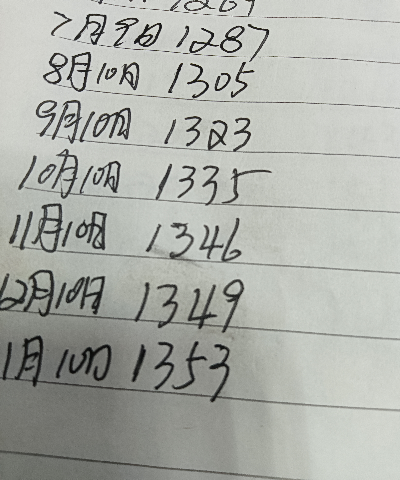 7月9日 1287
8月10日 1305
9月10日 1323
10月10日 1335
11月10日 1346
12月10日 1349
1月10日 1353